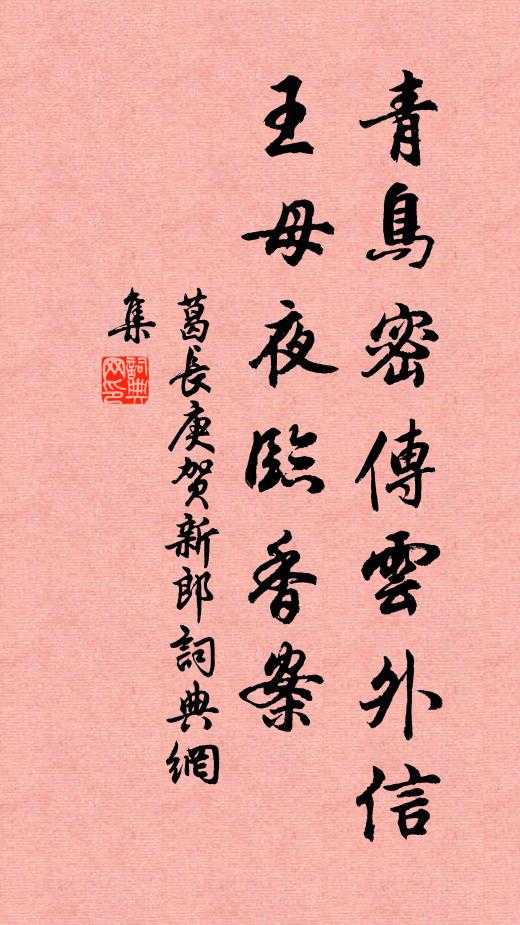 青鳥密傳雲外信
王母夜臨香案
葛長庚賀新郎詞典網
集
詞典
网印